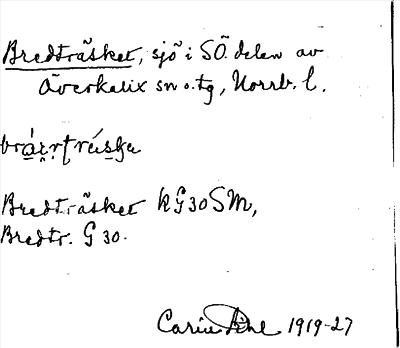 Bredträsket, sjö i SÖ. delen av
Överkalix sn o. tg, Norrb. l.
Bredträsket kG30SM,
Bredtr. G 30.
Carin Pihl 1919-27